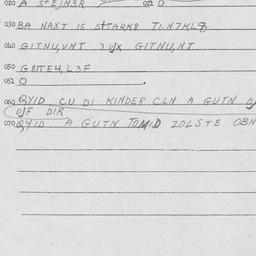 020 A StEJN3R 021 O
030 BA NAXT IS StTARK8 TI.N7KL8
040 GITNU,VNT JOJX GITNU,NT
050 G8ITE4,L3F
051 O
060 QYID CU DI KINDER CLN A GUTN
OJF DIR
070 QYID A GUTN TOMID ZOLSTE OBN